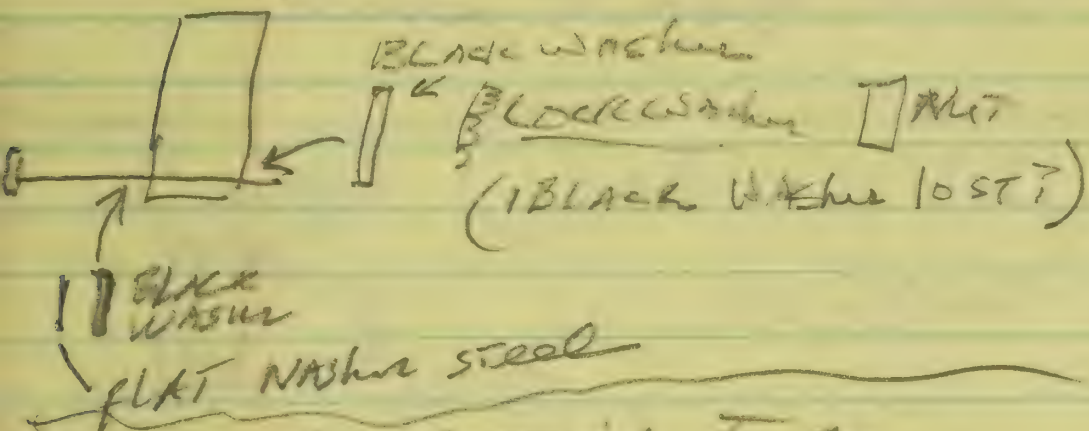 BLACK WASher
LOCKWASher NUT
(1 BLACK WASher LOST?)
BLACK
WASHer
FLAT WASher STeel